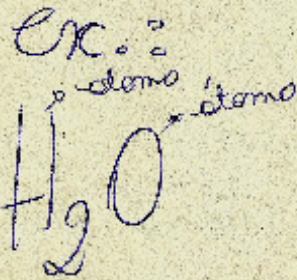 Ex.:
átomo
átomo
H₂O